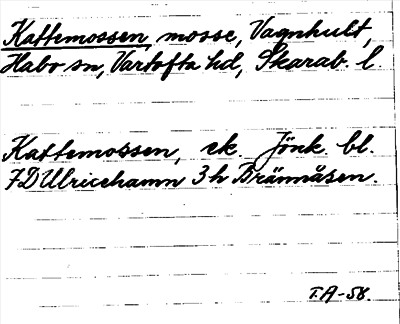 Kattemossen, mosse, Vagnhult,
Habo sn, Vartofta hd, Skarab. l.
Kattemossen, ek. Jönk. bl.
7D Ulricehamn 3h Brännåsen.
T.A-58.